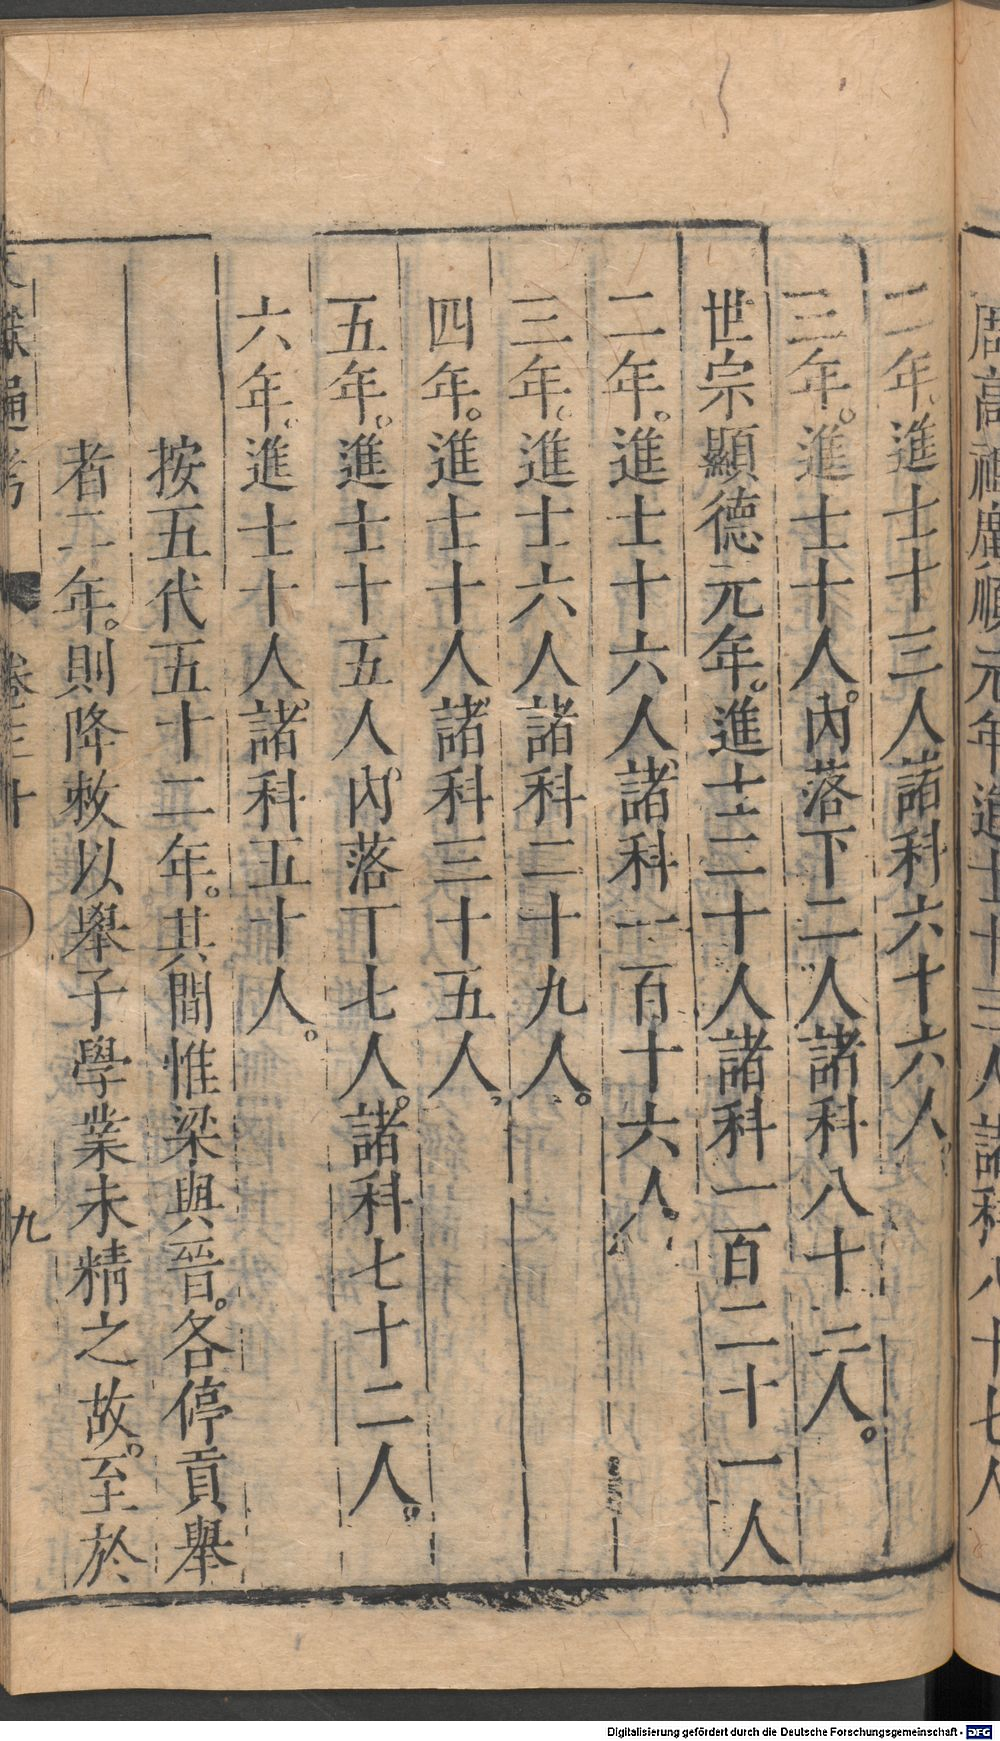 周高祖廣順元年進士十三人諸科八十七人
二年。進士十三人諸科六十六人。
三年。進士十人。內落下二人諸科八十二人。
世宗顯德元年。進士二十人諸科一百二十一人
二年。進士十六人諸科一百十六人。
三年。進士六人諸科二十九人。
四年。進士十人諸科三十五人。
五年。進士十五人。內落丁七人。諸科七十二人。
六年。進士十人諸科五十人。
按五代五十二年。其間惟梁與晉。各停貢舉
者二年。則降敕以舉子學業未精之故。至於
文獻通考 卷三十 九
Digitalisierung gefördert durch die Deutsche Forschungsgemeinschaft - DFG